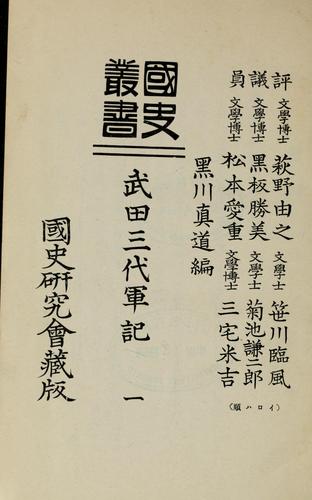 評議員
文學博士 萩野由之 文學士 笹川臨風
文學博士 黑板勝美 文學士 菊池謙二郎
文學博士 松本愛重 文學博士 三宅米吉
(イロハ順)
黑川真道編
國史叢書
武田三代軍記 一
國史研究會藏版